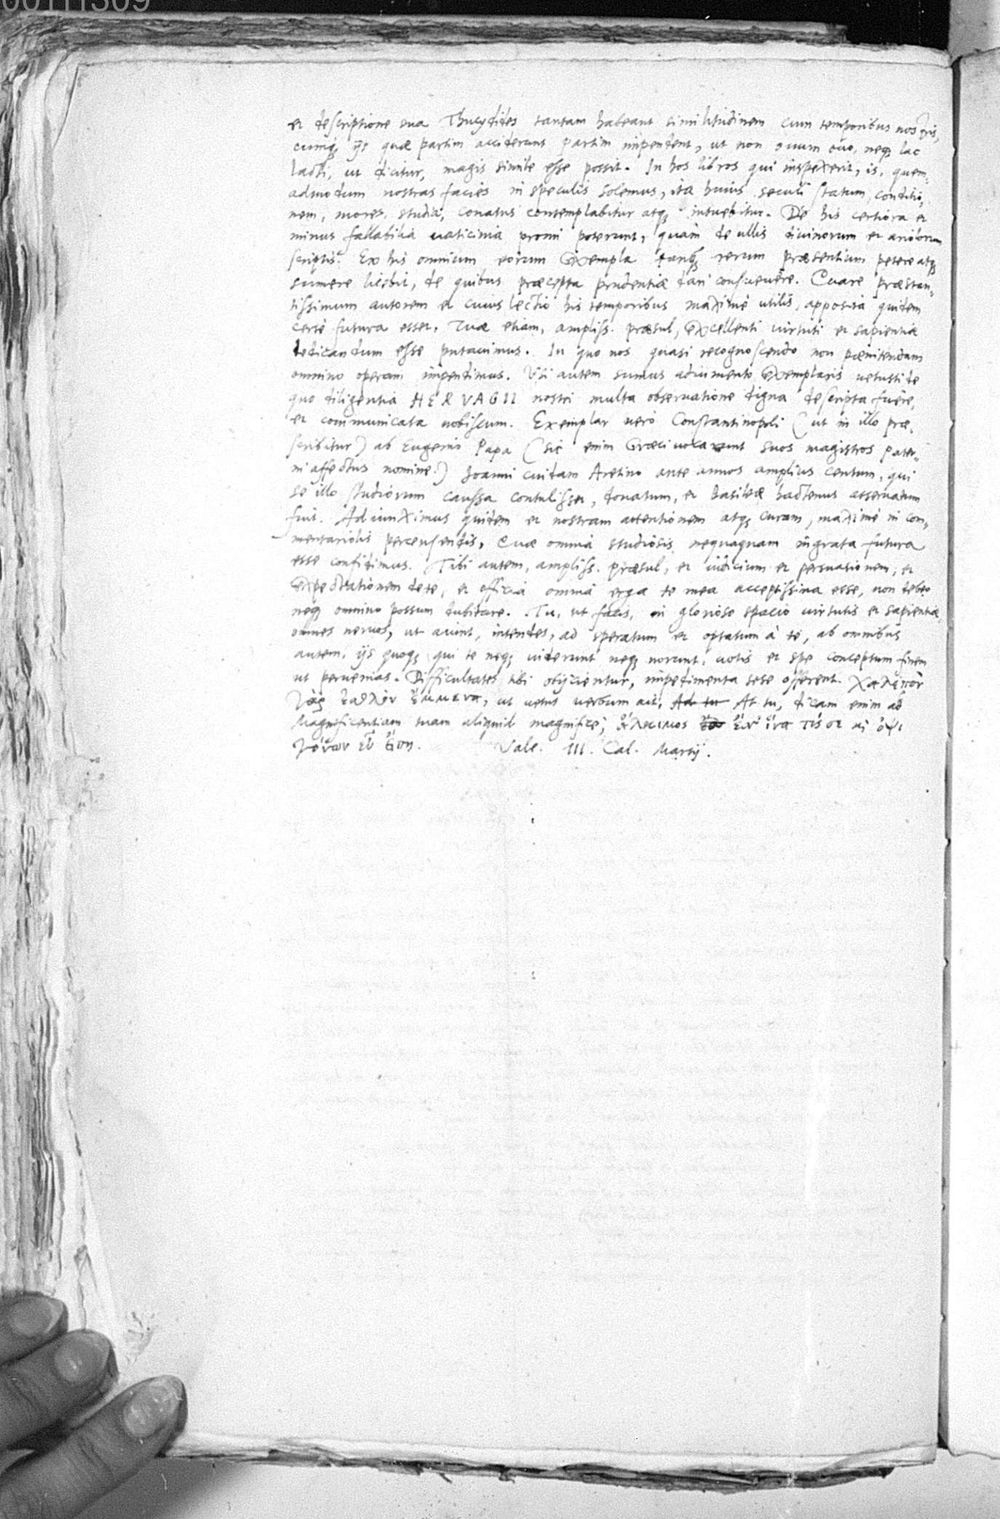 00111309
et descriptione sua Thucydides tantam habeant similitudinem cum temporibus nostris,
cumq̨ ijs quæ partim acciderunt partim impendent, ut non ouum ouo, neq̨ lac
lacti, ut dicitur, magis simile esse possit. In hos libros qui inspexerit, is, quem-
admodum nostras facies in speculis solemus, ita huius seculi statum, conditio-
nem, mores, studia, conatus contemplabitur atq̨ intuebitur. De his certiora et
minus fallacia uaticinia promi poterunt, quàm de ullis diuinorum et ariolorum
scriptis. Ex his omnium eorum exempla tanq̨ rerum præsentium petere atq̨
sumere licebit, de quibus præcepta prudentiæ dari consueuere. Quare præstan-
tissimum autorem et cuius lectio his temporibus maximè utilis, apposita quidem
certè futura esset, Tuæ etiam, ampliss. præsul, excellenti uirtuti et sapientiæ
dedicandum esse putauimus. In quo nos quasi recognoscendo non pœnitendam
omnino operam impendimus. Vsi autem sumus adiumento exemplaris uetusti de
quo diligentia HERVAGII nostri multa obseruatione digna descripta fuere,
et communicata nobiscum. Exemplar uerò Constantinopoli (ut in illo præ-
scribitur) ab Eugenio Papa (sic enim Græci uocarunt suos magistros pater-
ni affectus nomine.) Joanni cuidam Aretino ante annos amplius centum, qui
se illo studiorum caussa contulisset, donatum, et Basileæ hactenus asseruatum
fuit. Adiunximus quidem et nostram attentionem atq̨ curam, maximè in com-
mentariolis percensendis, Quæ omnia studiosis nequaquam ingrata futura
esse confidimus. Tibi autem, ampliss. præsul, et iudicium et persuasionem, et
expectationem de te, et officia omnia erga te mea acceptissima esse, non debeo
neq̨ omnino possum dubitare. Tu, ut facis, in glorioso spacio uirtutis et sapientiæ
omnes neruos, ut aiunt, intendes, ad speratum et optatum à te, ab omnibus
autem, ijs quoq̨ qui te neq̨ uiderunt neq̨ norunt, uotis et spe conceptum finem
ut peruenias. Difficultates tibi obijcientur, impedimenta sese offerent. Χαλεπὸν
γὰρ ἐσθλὸν ἔμμεναι, ut uetus uerbum ait, Ad tu At tu, dicam enim ad
Magnificentiam tuam aliquid magnificè,
Vale. III. Cal. Martij.